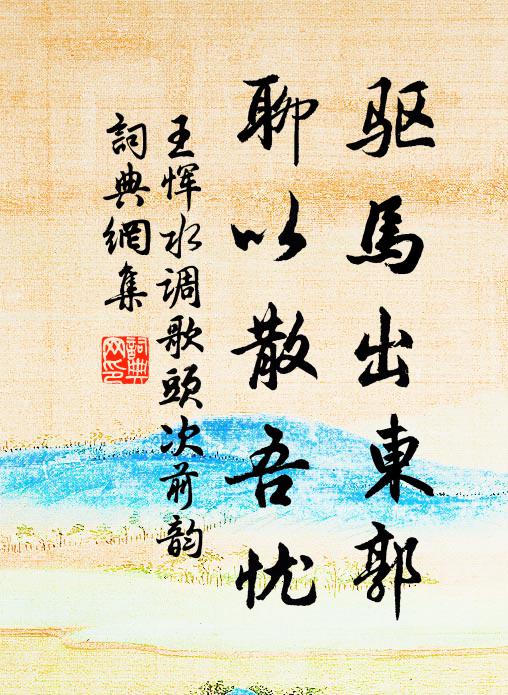 驱馬出東郭
聊以散吾忧
王恽水调歌頭次前韵
詞典網集
詞典網印